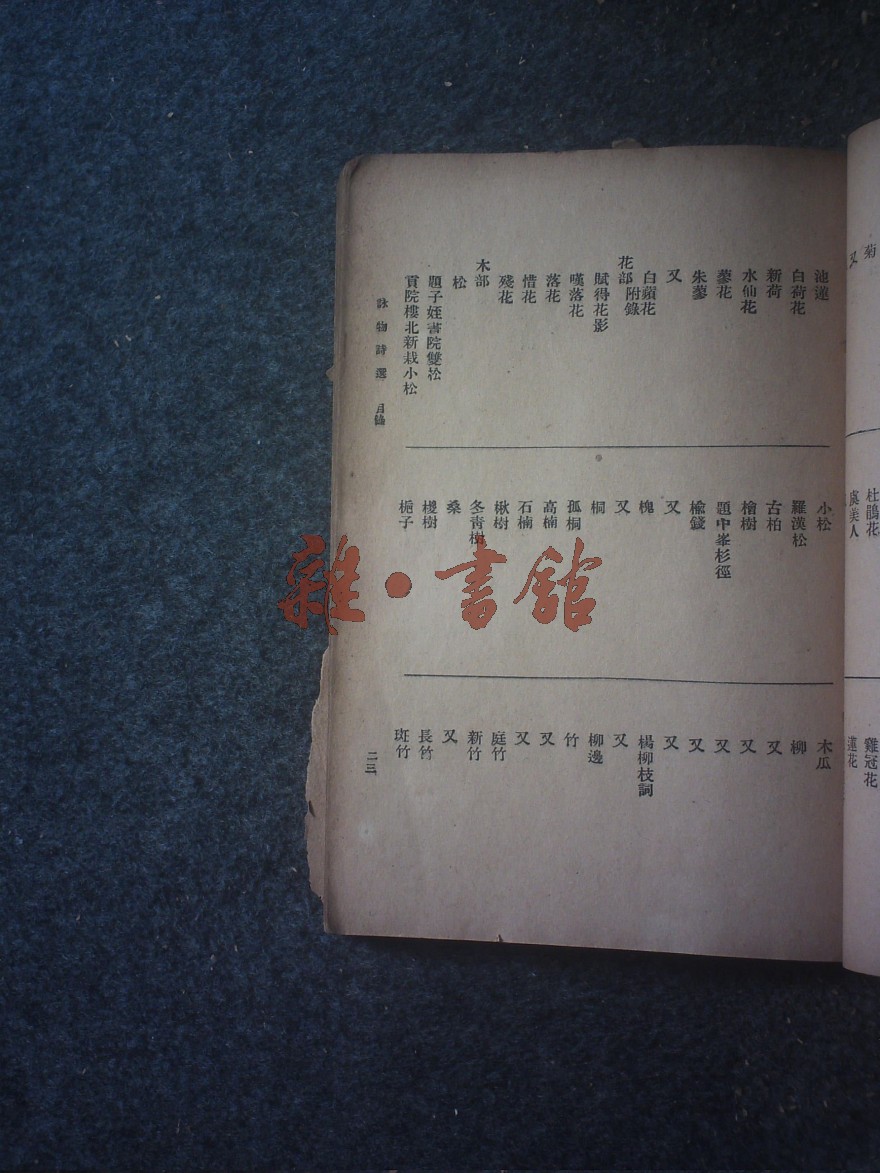 菊
又
杜鵑花
虞美人
雞冠花
蓮花
池蓮
白荷花
新荷
水仙花
蓼花
朱蓼
又
白蘋花
花部附錄
賦得花影
嘆落花
落花
惜花
殘花
木部
松
題子姪書院雙松
貢院樓北新栽小松
小松
羅漢松
古柏
檜樹
題中峯杉徑
榆錢
又
槐
又
桐
孤桐
高楠
石楠
楸樹
冬青樹
桑
椶樹
梔子
木瓜
柳
又
又
又
又
楊柳枝詞
又
柳邊
竹
又
又
庭竹
新竹
又
長竹
斑竹
詠物詩選 目錄
二三
雜·書館